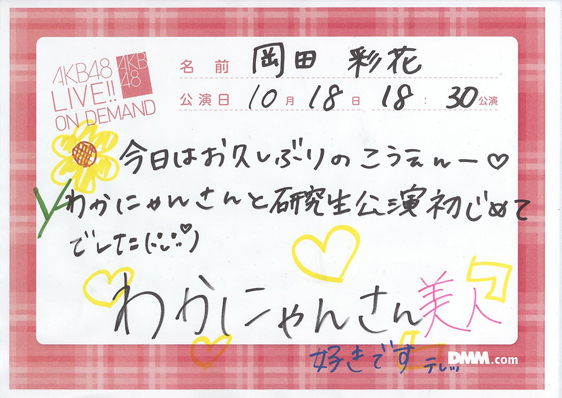 AKB48
LIVE!!
ON DEMAND
AKB
48
名前 岡田 彩花
公演日 10月 18日 18:30公演
今日はお久しぶりのこうえんー♡
わかにゃんさんと研究生公演初じめて
でした
わかにゃんさん美人
好きです テレッ
DMM.com